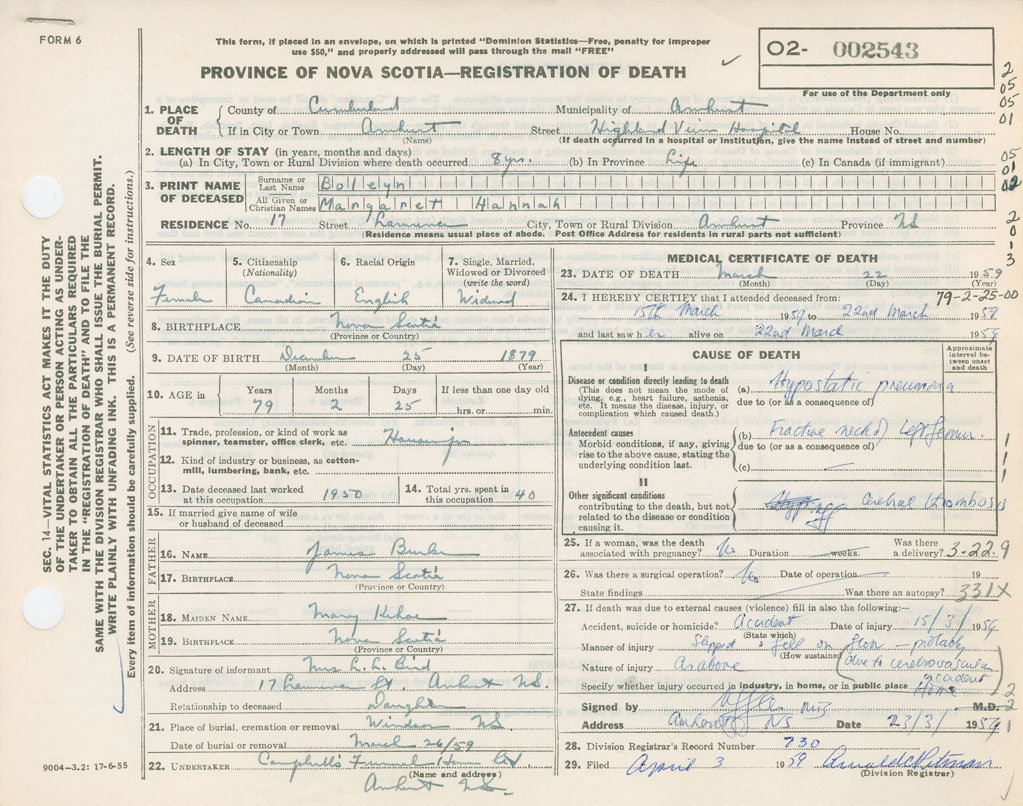 FORM 6
This form, if placed in an envelope, on which is printed "Dominion Statistics—Free, penalty for improper
use $50," and properly addressed will pass through the mail "FREE"
PROVINCE OF NOVA SCOTIA—REGISTRATION OF DEATH
02- 002543
For use of the Department only
2
05
05
01
05
01
02
2
0
1
3
SEC. 14—VITAL STATISTICS ACT MAKES IT THE DUTY
OF THE UNDERTAKER OR PERSON ACTING AS UNDER-
TAKER TO OBTAIN ALL THE PARTICULARS REQUIRED
IN THE "REGISTRATION OF DEATH" AND TO FILE THE
SAME WITH THE DIVISION REGISTRAR WHO SHALL ISSUE THE BURIAL PERMIT.
WRITE PLAINLY WITH UNFADING INK. THIS IS A PERMANENT RECORD.
Every item of information should be carefully supplied. (See reverse side for instructions.)
1. PLACE OF DEATH
County of Cumberland Municipality of Amherst
If in City or Town Amherst Street Highland View Hospital House No.
(Name) (If death occurred in a hospital or institution, give the name instead of street and number)
2. LENGTH OF STAY (in years, months and days)
(a) In City, Town or Rural Division where death occurred 8 yrs. (b) In Province Life (c) In Canada (if immigrant)
3. PRINT NAME OF DECEASED
Surname or Last Name Bolleyn
All Given or Christian Names Margaret Hannah
RESIDENCE No. 17 Street City, Town or Rural Division Amherst Province NS
(Residence means usual place of abode. Post Office Address for residents in rural parts not sufficient)
4. Sex Female
5. Citizenship (Nationality) Canadian
6. Racial Origin English
7. Single, Married, Widowed or Divorced (write the word) Widowed
8. BIRTHPLACE Nova Scotia
(Province or Country)
9. DATE OF BIRTH December 25 1879
(Month) (Day) (Year)
10. AGE in Years 79 Months 2 Days 25 If less than one day old hrs. or min.
OCCUPATION
11. Trade, profession or kind of work as spinner, teamster, office clerk, etc. Housewife
12. Kind of industry or business, as cotton-mill, lumbering, bank, etc.
13. Date deceased last worked at this occupation 1950
14. Total yrs. spent in this occupation 40
15. If married give name of wife or husband of deceased
FATHER
16. NAME James
17. BIRTHPLACE Nova Scotia
(Province or Country)
MOTHER
18. MAIDEN NAME Mary Kehoe
19. BIRTHPLACE Nova Scotia
(Province or Country)
20. Signature of informant Mrs L. L. Bird
Address 17 St. Amherst N.S.
Relationship to deceased Daughter
21. Place of burial, cremation or removal Windsor N.S.
Date of burial or removal March 26/59
22. UNDERTAKER Campbell's Funeral Home
(Name and address)
Amherst N.S.
9004-3.2: 17-6-55
MEDICAL CERTIFICATE OF DEATH
23. DATE OF DEATH March 22 1959
(Month) (Day) (Year)
24. I HEREBY CERTIFY that I attended deceased from: 79-2-25-00
15th March 1959 to 22nd March 1959
and last saw her alive on 22nd March 1959
CAUSE OF DEATH
Approximate interval between onset and death
I
Disease or condition directly leading to death
(This does not mean the mode of dying, e.g., heart failure, asthenia, etc. It means the disease, injury, or complication which caused death.)
(a) Hypostatic pneumonia
due to (or as a consequence of)
Antecedent causes
Morbid conditions, if any, giving rise to the above cause, stating the underlying condition last.
(b) Fractive neck of Left femur.
due to (or as a consequence of)
(c)
II
Other significant conditions
contributing to the death, but not related to the disease or condition causing it.
Cerebral thrombosis
25. If a woman, was the death associated with pregnancy? No Duration weeks. Was there a delivery? 3-22-9
26. Was there a surgical operation? No Date of operation 19
State findings Was there an autopsy? 331X
27. If death was due to external causes (violence) fill in also the following:—
Accident, suicide or homicide? Accident Date of injury 15/3/ 1959
(State which)
Manner of injury Slipped & fell on floor — probably
(How sustained) (due to cerebrovascular accident
Nature of injury As above
Specify whether injury occurred in industry, in home, or in public place Home
Signed by M.D.
Address Amherst NS Date 23/3/ 1959
28. Division Registrar's Record Number 730
29. Filed April 3 1959
(Division Registrar)